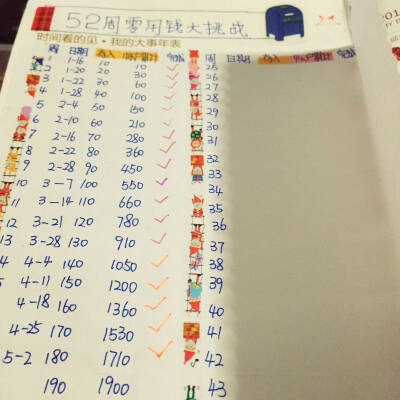 52周零用钱大挑战
时间看的见·我的大事年表
周 日期 存入 账户累计
1 1-16 10 10
2 1-20 20 30
3 1-22 30 60
4 1-28 40 100
5 2-4 50 150
6 2-10 60 210
7 2-16 70 280
8 2-22 80 360
9 2-28 90 450
10 3-7 100 550
11 3-14 110 660
12 3-21 120 780
13 3-28 130 910
4 4-4 140 1050
4-11 150 1200
4-18 160 1360
4-25 170 1530
5-2 180 1710
190 1900
周 日期 存入 账户累计
25
26
27
28
29
30
31
32
33
34
35
36
37
38
39
40
41
42
43
201